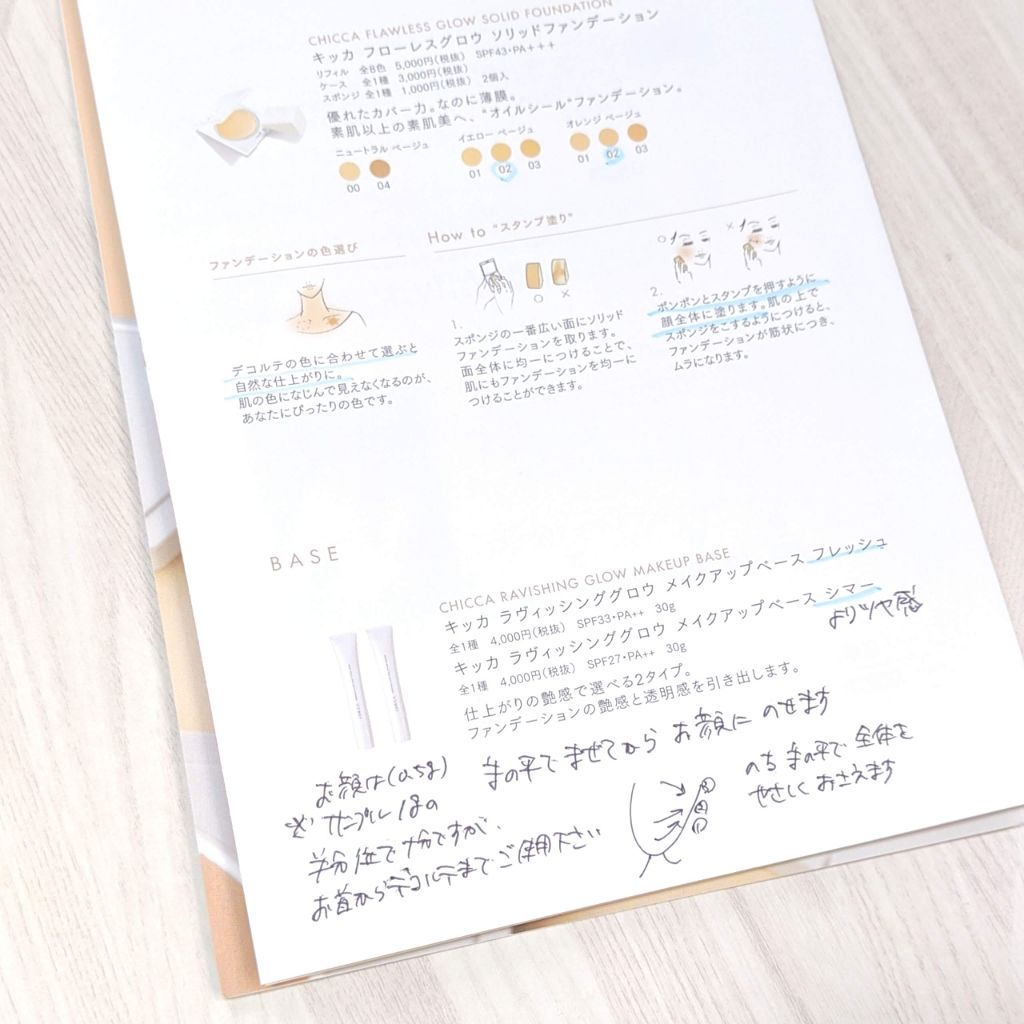 CHICCA FLAWLESS GLOW SOLID FOUNDATION
キッカ フローレスグロウ ソリッドファンデーション
リフィル 全8色 5,000円(税抜) SPF43・PA+++
ケース 全1種 3,000円(税抜)
スポンジ 全1種 1,000円(税抜) 2個入
優れたカバー力。なのに薄膜。
素肌以上の素肌美へ、“オイルシール”ファンデーション。
ニュートラル ベージュ
00 04
イエロー ベージュ
01 02 03
オレンジ ベージュ
01 02 03
ファンデーションの色選び
デコルテの色に合わせて選ぶと
自然な仕上がりに。
肌の色になじんで見えなくなるのが、
あなたにぴったりの色です。
How to “スタンプ塗り”
○ ×
1.
スポンジの一番広い面にソリッド
ファンデーションを取ります。
面全体に均一につけることで、
肌にもファンデーションを均一に
つけることができます。
○ ×
2.
ポンポンとスタンプを押すように
顔全体に塗ります。肌の上で
スポンジをこするようにつけると、
ファンデーションが筋状につき、
ムラになります。
BASE
CHICCA RAVISHING GLOW MAKEUP BASE
キッカ ラヴィッシンググロウ メイクアップベース フレッシュ
全1種 4,000円(税抜) SPF33・PA++ 30g
キッカ ラヴィッシンググロウ メイクアップベース シマー
よりツヤ感
全1種 4,000円(税抜) SPF27・PA++ 30g
仕上がりの艶感で選べる2タイプ。
ファンデーションの艶感と透明感を引き出します。
お顔は(0.5g) 手の平でまぜてから お顔に のせます
※サンプル1gの
半分位で十分ですが、
お首からデコルテまでご使用下さい
③
②
①
のち 手の平で 全体を
やさしく おさえます